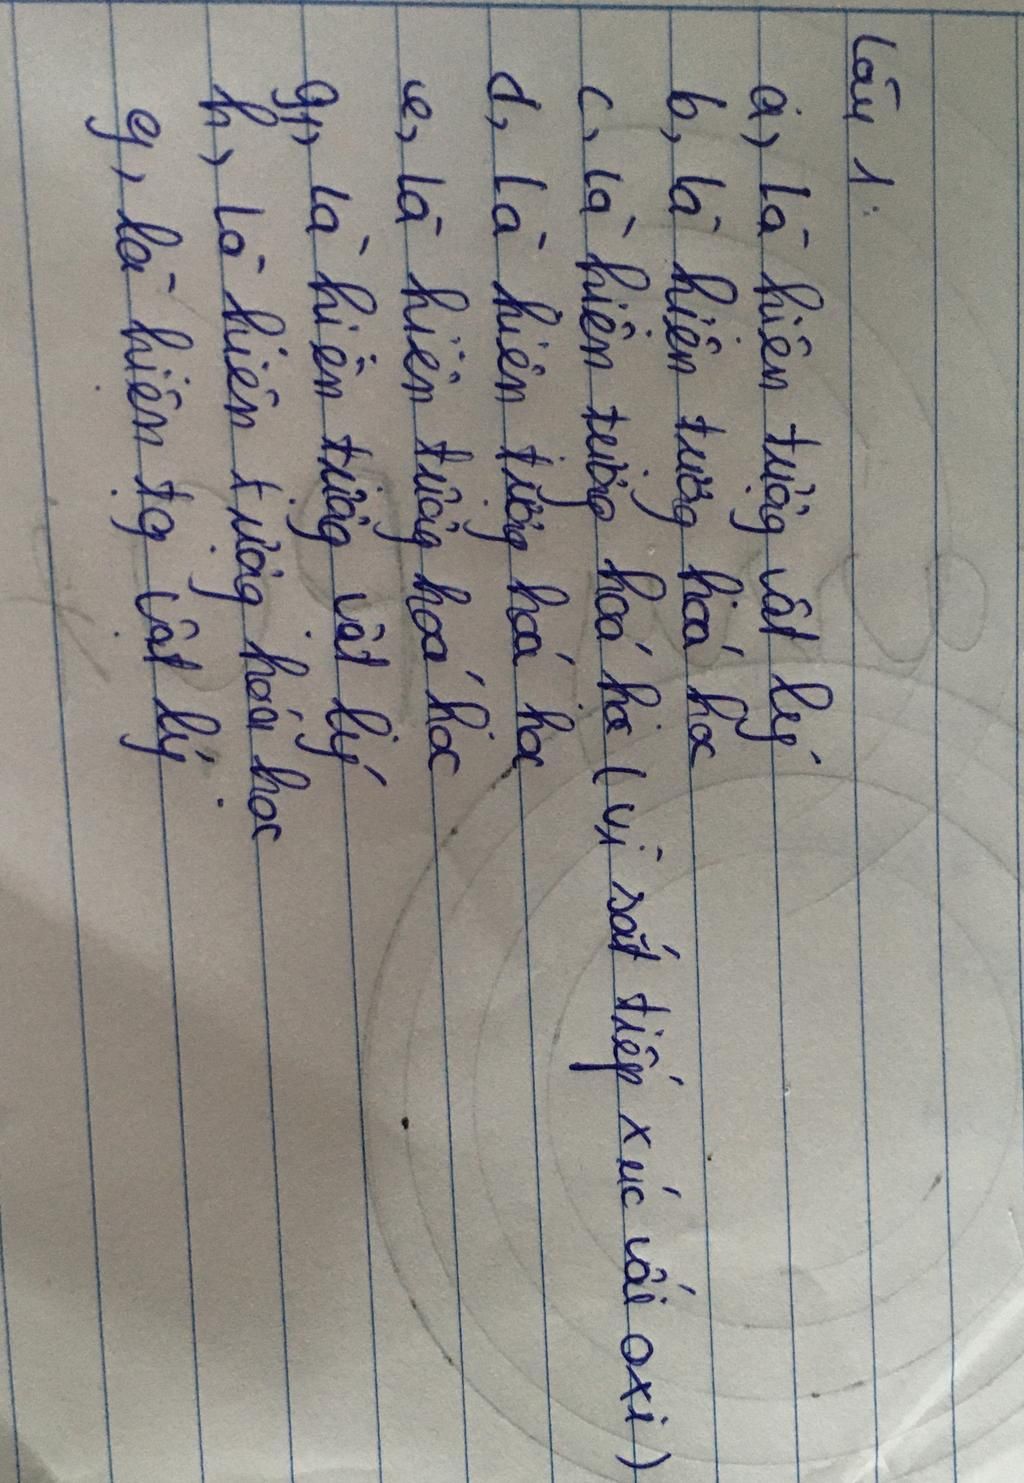 Câu 1:
a, là hiện tượng vật lý
b, là hiện tượng hoá học
c, là hiện tượng hoá học (vì sắt tiếp xúc với oxi)
d, là hiện tượng hoá học
e, là hiện tượng hoá học
g, là hiện tượng vật lý
h, là hiện tượng hóa học
g, là hiện tg vật lý